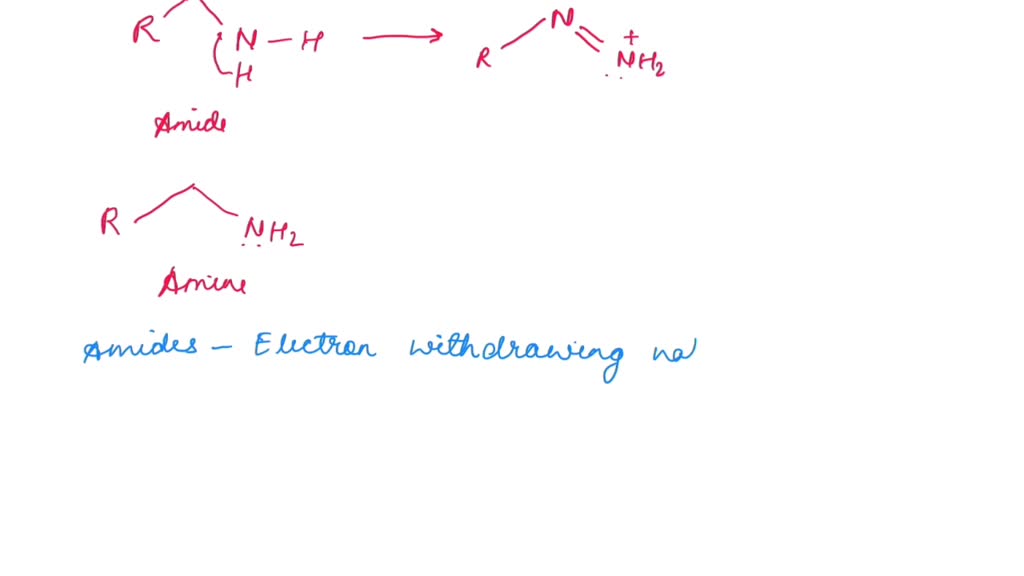 R N — H ⟶ R N = N⁺H₂
H
Amide
R NH₂
Amine
Amides – Electron withdrawing na